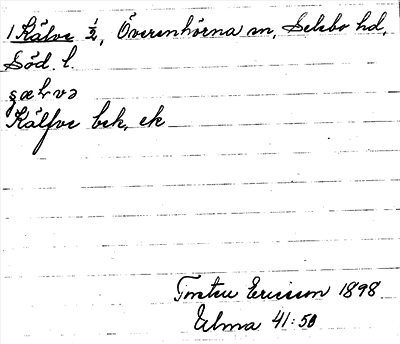 1 Kälve ½, Överenhörna sn, Selebo hd,
Söd. l.
çælvə
Kälfve bek, ek
Torsten Ericsson 1898
Elma 41:50